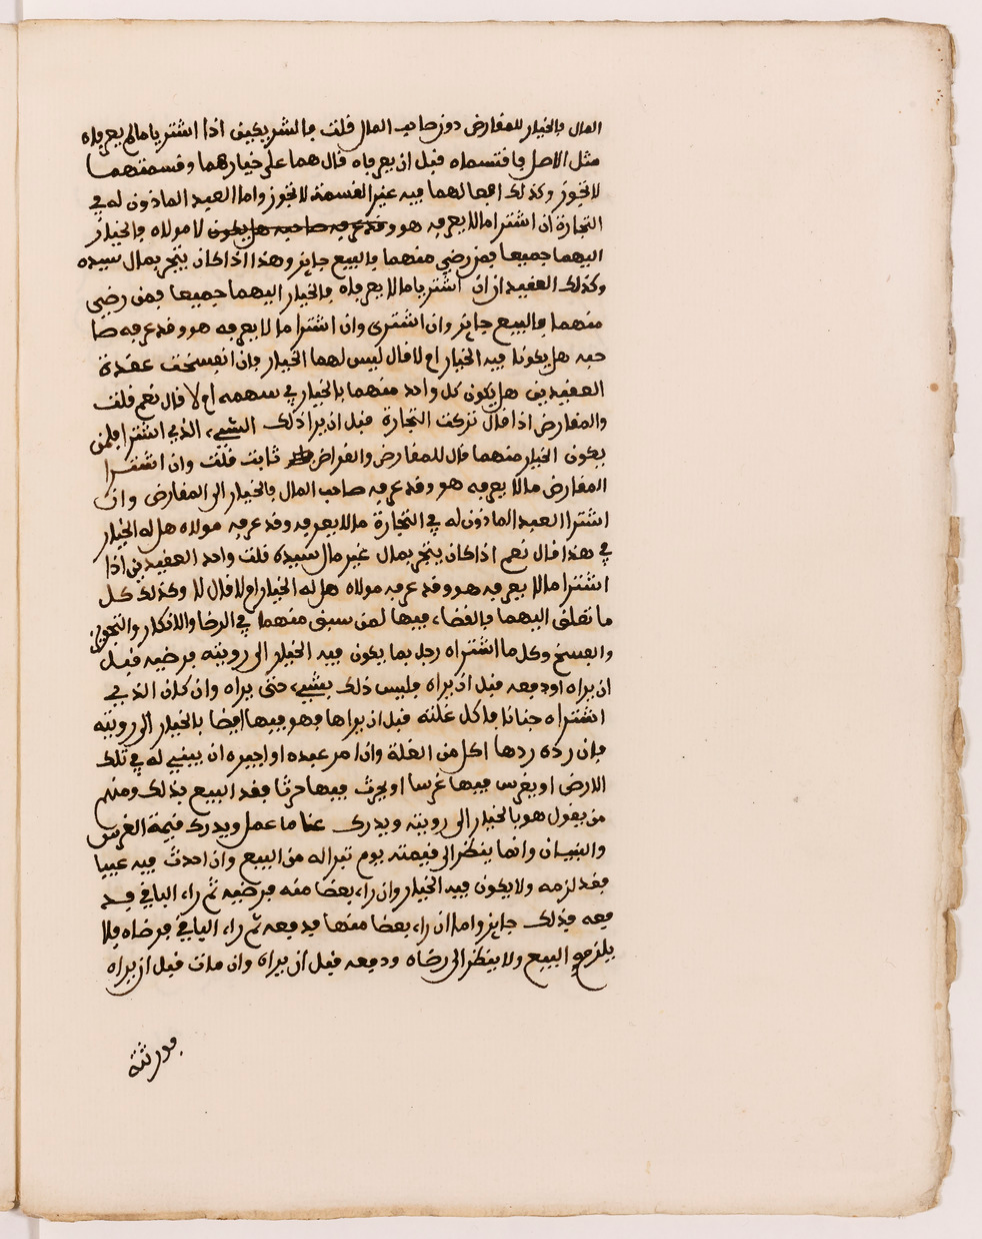 المال بالخيار للمقارض دون صاحب المال قلت فالشريكين اذا اشتريا ما لم يعرفاه
مثل الاصل فاقتسماه قبل ان يعرفاه قال هما على خيارهما وقسمتهما
لا تجوز وكذلك افعالهما فيه غير القسمة لا تجوز واما العبد الماذون له في
التجارة ان اشترا ما لا يعرفه هو وقد عرفه صاحبه هل يكون لا مولاه فالخيار
اليهما جميعا فمن رضي منهما فالبيع جايز وهذا اذا كان يتجر بمال سيده
وكذلك العقيد ان ان اشتريا ما لا يعرفاه فالخيار اليهما جميعا فمن رضي
منهما فالبيع جايز وان اشترى وان اشترا ما لا يعرفه هو وقد عرفه صا
حبه هل يكونا فيه الخيار ام لا قال ليس لهما الخيار فان انفسخت عقدة
العقيدين هل يكون كل واحد منهما بالخيار في سهمه ام لا قال نعم قلت
والمقارض اذا قال تركت التجارة قبل ان يرا ذلك الشيء الذي اشترا فلمن
يكون الخيار منهما قال للمقارض والقراض ثابت قلت وان اشترا
المقارض ما لا يعرفه هو وقد عرفه صاحب المال فالخيار الى المقارض وان
اشترا العبد الماذون له في التجارة ما لا يعرفه وقد عرفه مولاه هل له الخيار
في هذا قال نعم اذا كان يتجر بمال غير مال سيده قلت واحد العقيدين اذا
اشترا ما لا يعرفه هو وقد عرفه مولاه هل له الخيار ام لا قال لا وكذلك كل
ما تعلق اليهما فالقضاء فيها لمن سبق منهما في الرضا والانكار والتجويز
والفسخ وكل ما اشتراه رجل بما يكون فيه الخيار الى رويته فرضيه قبل
ان يراه او دفعه قبل ان يراه فليس ذلك بشيء حتى يراه وان كان الذي
اشتراه جنانا فاكل غلته قبل ان يراها فهو فيها ايضا بالخيار الى رويته
فان رده ردها اكل من الغلة وان امر عبده او اجيره ان يبني له في تلك
الارض او يغرس فيها غرسا او يحرث فيها حرثا فقد البيع بذلك ومنهم
من يقول هو بالخيار الى رويته ويدرك عنا ما عمل ويدرك قيمة الغرس
والبنيان وانما ينظر الى قيمته يوم تبرا له من البيع وان احدث فيه عيبا
فقد لزمه ولا يكون فيه الخيار وان راء بعضا منه فرضيه ثم راء الباقي فد
فعه فذلك جايز واما ان راء بعضا منها فدفعه ثم راء الباقي فرضاه فلا
يلزمه البيع ولا ينظر الى رضاه ودفعه قبل ان يراه وان مات قبل ان يراه
فورثته